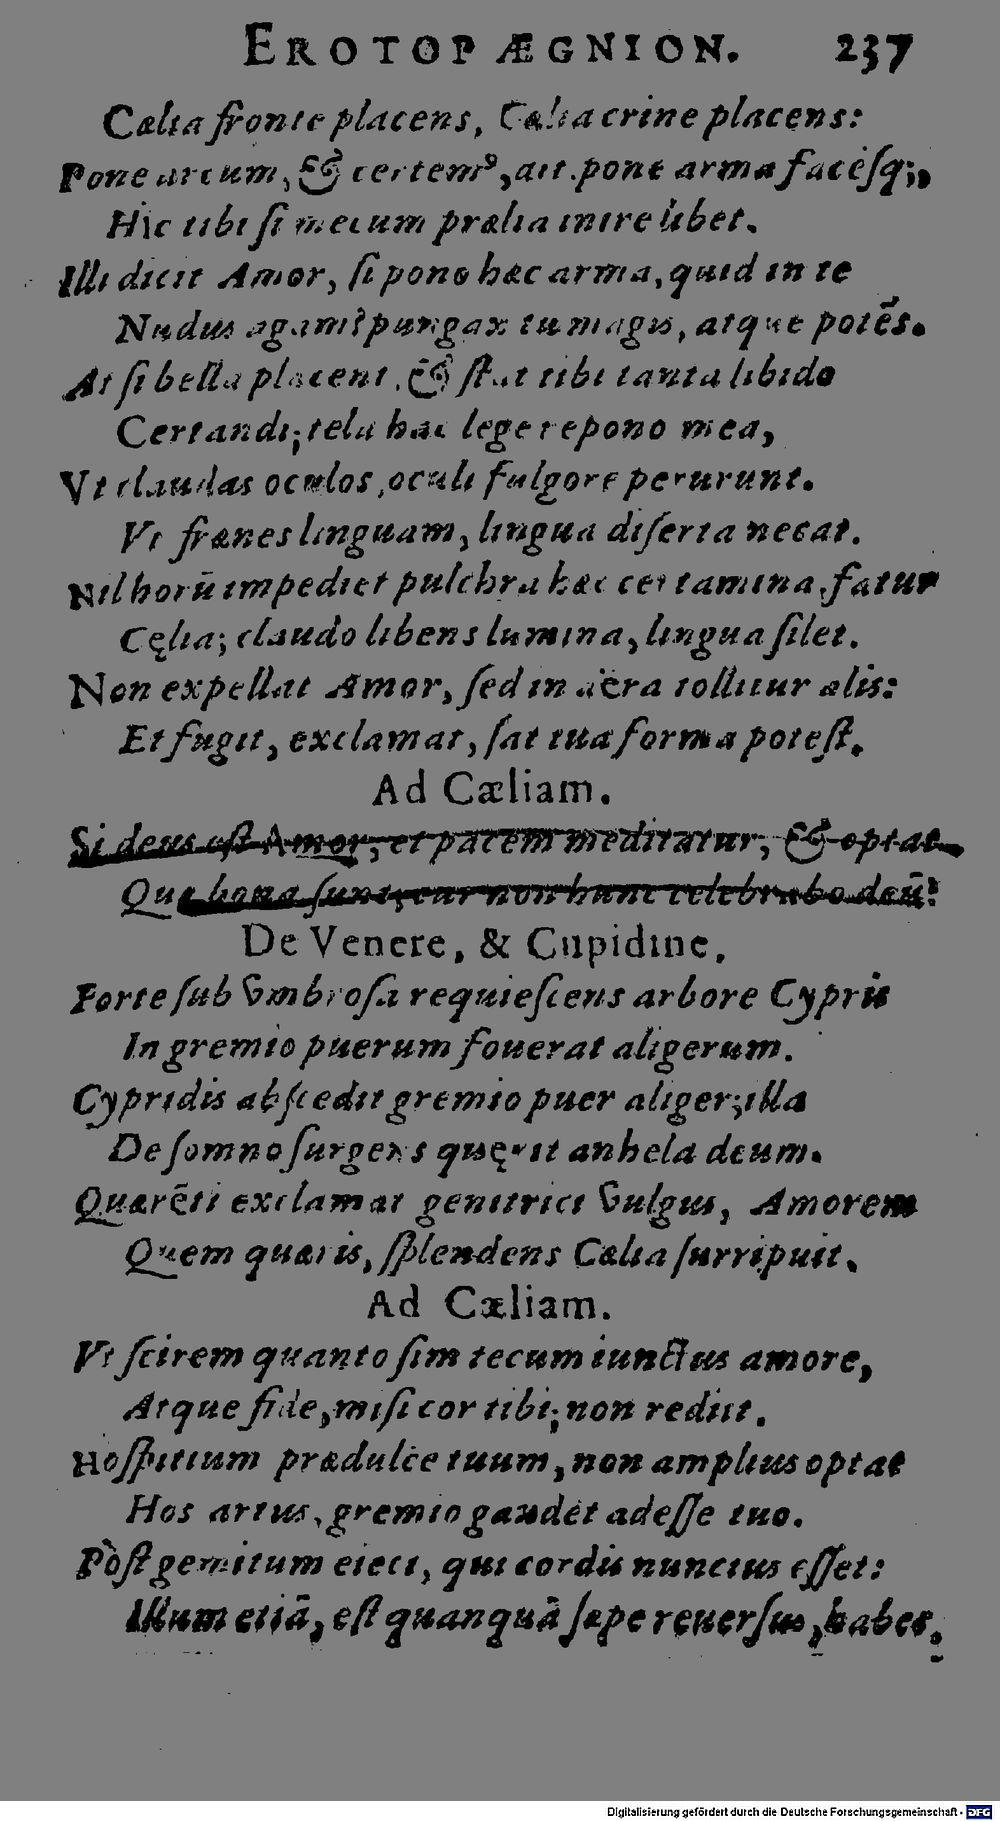 EROTOPÆGNION. 237
Cælia fronte placens, Cælia crine placens:
Pone arcum, & certemꝰ, ait. pone arma facésq;,
Hic tibi si mecum prælia inire lubet.
Illi dicit Amor, si pono hæc arma, quid in te
Nudus agam? pungax tu magis, atque potẽs.
At si bella placent, & stat tibi tanta libido
Certandi; tela hac lege repono mea,
Vt claudas oculos, oculi fulgore perurunt.
Vt frænes linguam, lingua diserta necat.
Nil horũ impediet pulchra hæc certamina, fatur
Cęlia; claudo libens lumina, lingua silet.
Non expellat Amor, sed in aëra tollitur alis:
Et fugit, exclamat, sat tua forma potest.
Ad Cæliam.
Si deus est Amor, et pacem meditatur, & optat
Quæ bona sunt, cur non hunc celebrabo deũ?
De Venere, & Cupidine.
Forte sub vmbrosa requiescens arbore Cypris
In gremio puerum fouerat aligerum.
Cypridis abscedit gremio puer aliger; illa
De somno surgens quęrit anhela deum.
Quærẽti exclamat genitrici vulgus, Amorem
Quem quæris, splendens Cælia surripuit.
Ad Cæliam.
Vt scirem quanto sim tecum iunctus amore,
Atque fide, misi cor tibi; non redijt.
Hospitium prædulce tuum, non amplius optat
Hos artus, gremio gaudet adesse tuo.
Pòst gemitum eieci, qui cordis nuncius esset:
Illum etiã, est quanquã sæpe reuersus, habes.
Digitalisierung gefördert durch die Deutsche Forschungsgemeinschaft - DFG